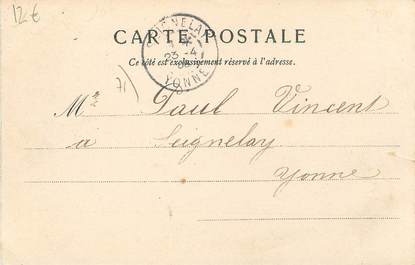 12€
CARTE POSTALE
Ce côté est exclusivement réservé à l'adresse.
YONNE
71)
Mr Paul Vincent
à Seignelay
Yonne